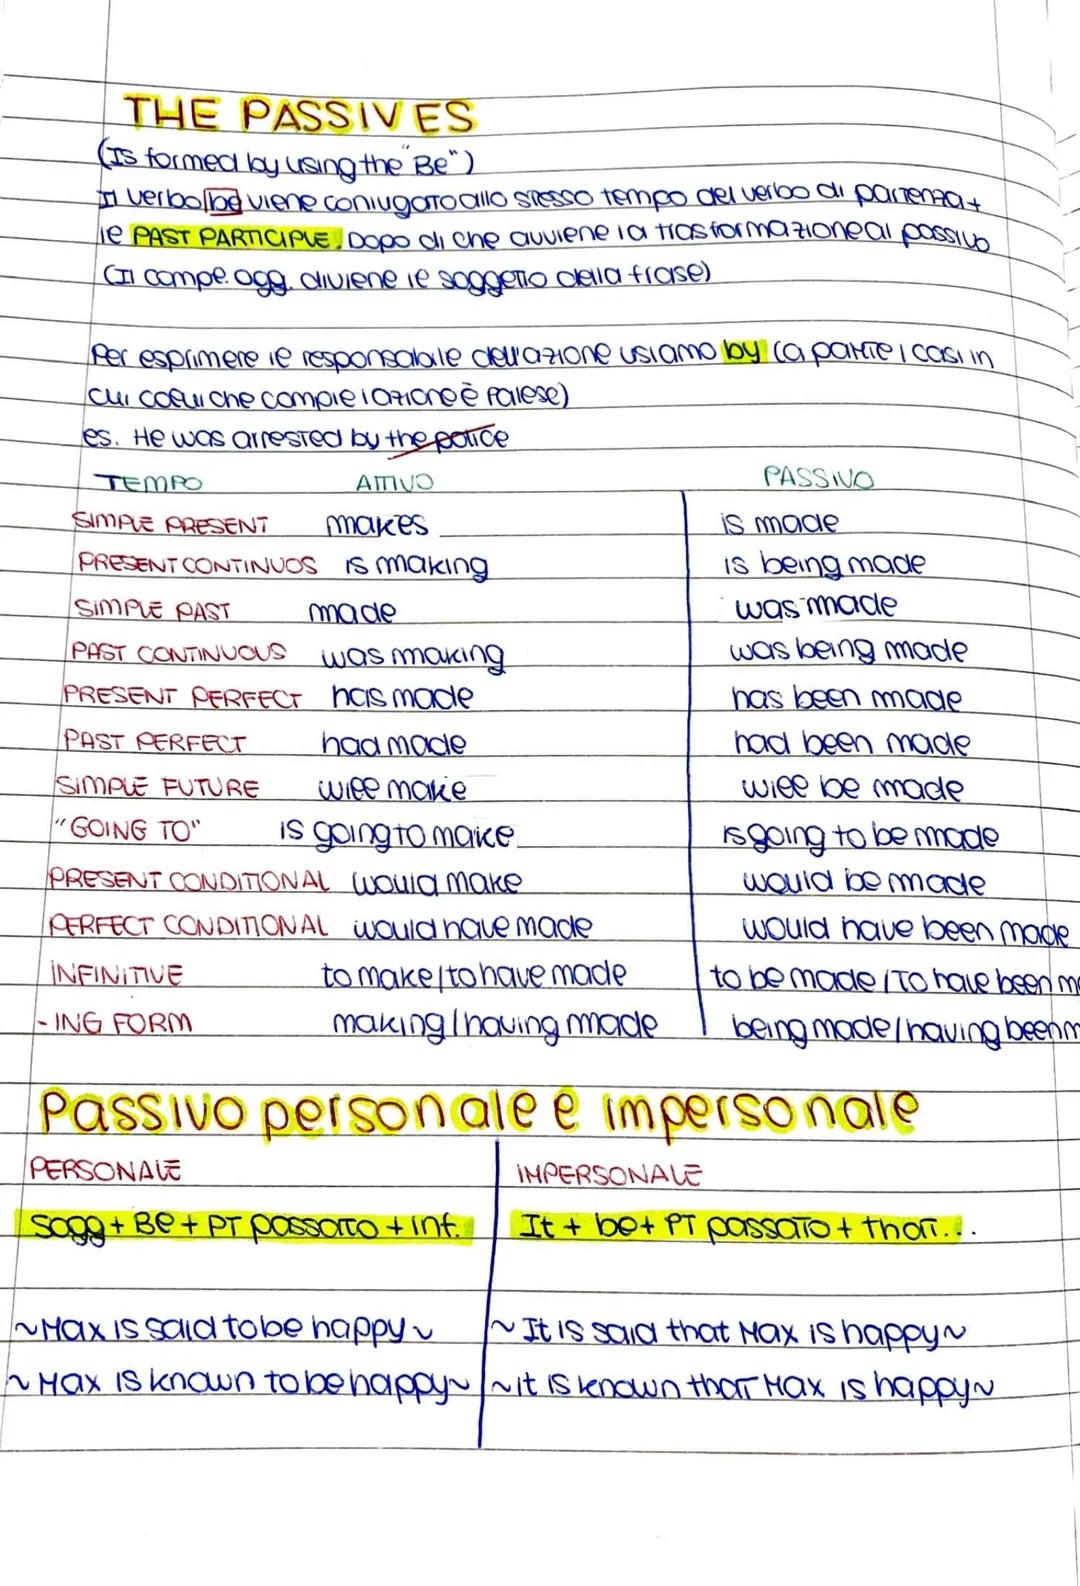 THE PASSIVES
(Is formed by using the "Be")
Il verbo be viene coniugato allo stesso tempo del verbo di partenza +
il PAST PARTICIPLE. Dopo di che avviene la trasformazione al passivo
(Il compl. ogg. diviene il soggetto della frase)
Per esprimere il responsabile dell'azione usiamo by (a parte i casi in
cui colui che compie l'azione è palese)
es. He was arrested by the police
TEMPO ATTIVO PASSIVO
SIMPLE PRESENT makes is made
PRESENT CONTINUOS is making is being made
SIMPLE PAST made was made
PAST CONTINUOUS was making was being made
PRESENT PERFECT has made has been made
PAST PERFECT had made had been made
SIMPLE FUTURE will make will be made
"GOING TO" is going to make is going to be made
PRESENT CONDITIONAL would make would be made
PERFECT CONDITIONAL would have made would have been made
INFINITIVE to make/to have made to be made/To have been m
-ING FORM making/having made being made/having been m
Passivo personale e impersonale
PERSONALE IMPERSONALE
Sogg + Be + PT passato + inf. It + be + PT passato + that...
~Max is said to be happy~ ~It is said that Max is happy~
~Max is known to be happy~ ~it is known that Max is happy~